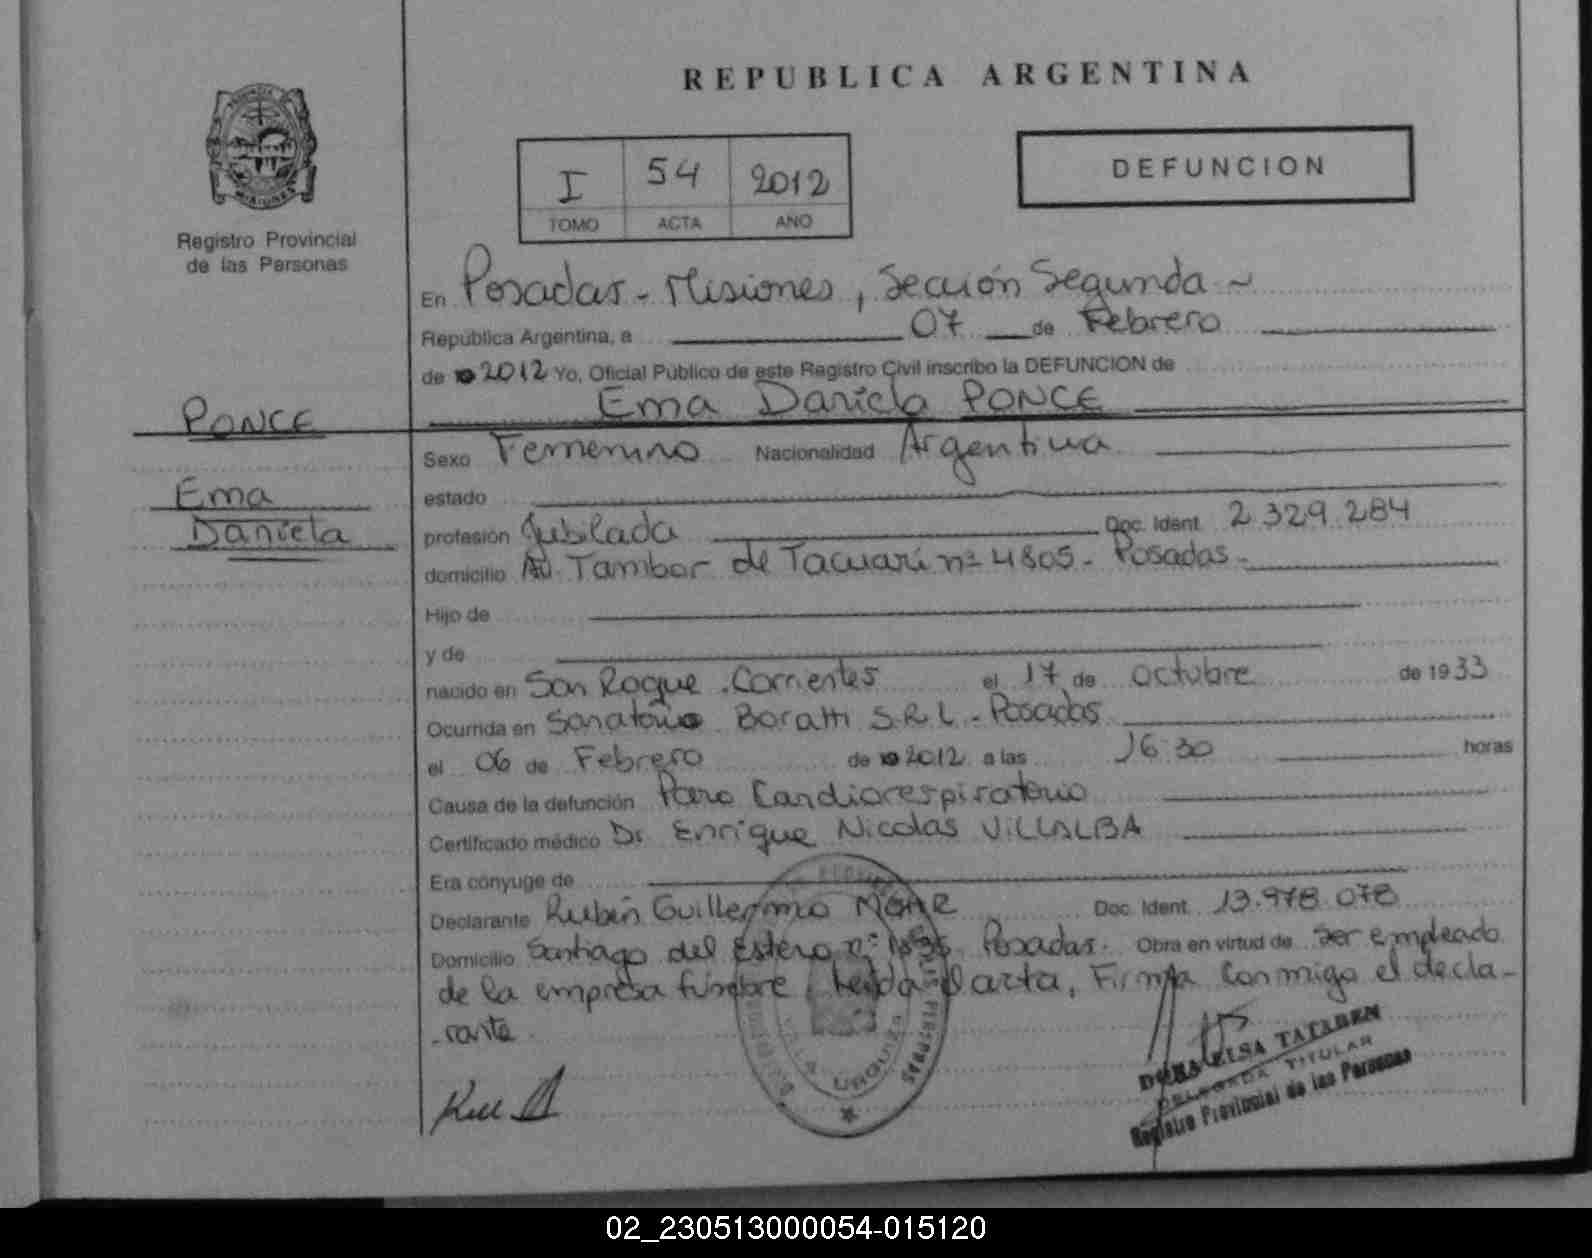 REPUBLICA ARGENTINA
I 54 2012
TOMO ACTA AÑO
DEFUNCION
MISIONES
Registro Provincial
de las Personas
En Posadas - Misiones, Sección Segunda ~
República Argentina, a 07 de Febrero
de 2012 Yo, Oficial Público de este Registro Civil inscribo la DEFUNCION de
PONCE
Ema Daniela PONCE
Sexo Femenino Nacionalidad Argentina
Ema
estado
Daniela
profesión Jubilada Doc. Ident. 2.329.284
domicilio Av. Tambor de Tacuarí nº 4805 - Posadas -
Hijo de
y de
nacido en San Roque . Corrientes el 17 de octubre de 1933
Ocurrida en Sanatorio Boratti S.R.L - Posadas
el 06 de Febrero de 2012 a las 16:30 horas
Causa de la defunción Paro Cardiorespiratorio
Certificado médico Dr Enrique Nicolas VILLALBA
Era cónyuge de
Declarante Rubén Guillermo Doc. Ident. 13.978.078
Domicilio Santiago del Estero nº Posadas. Obra en virtud de ser empleado
de la empresa fúnebre, leida acta, Firma conmigo el decla-
-rante.
VILLA URQUIZA
ELSA
DELEGADA TITULAR
Registro Provincial de las Personas
02_230513000054-015120